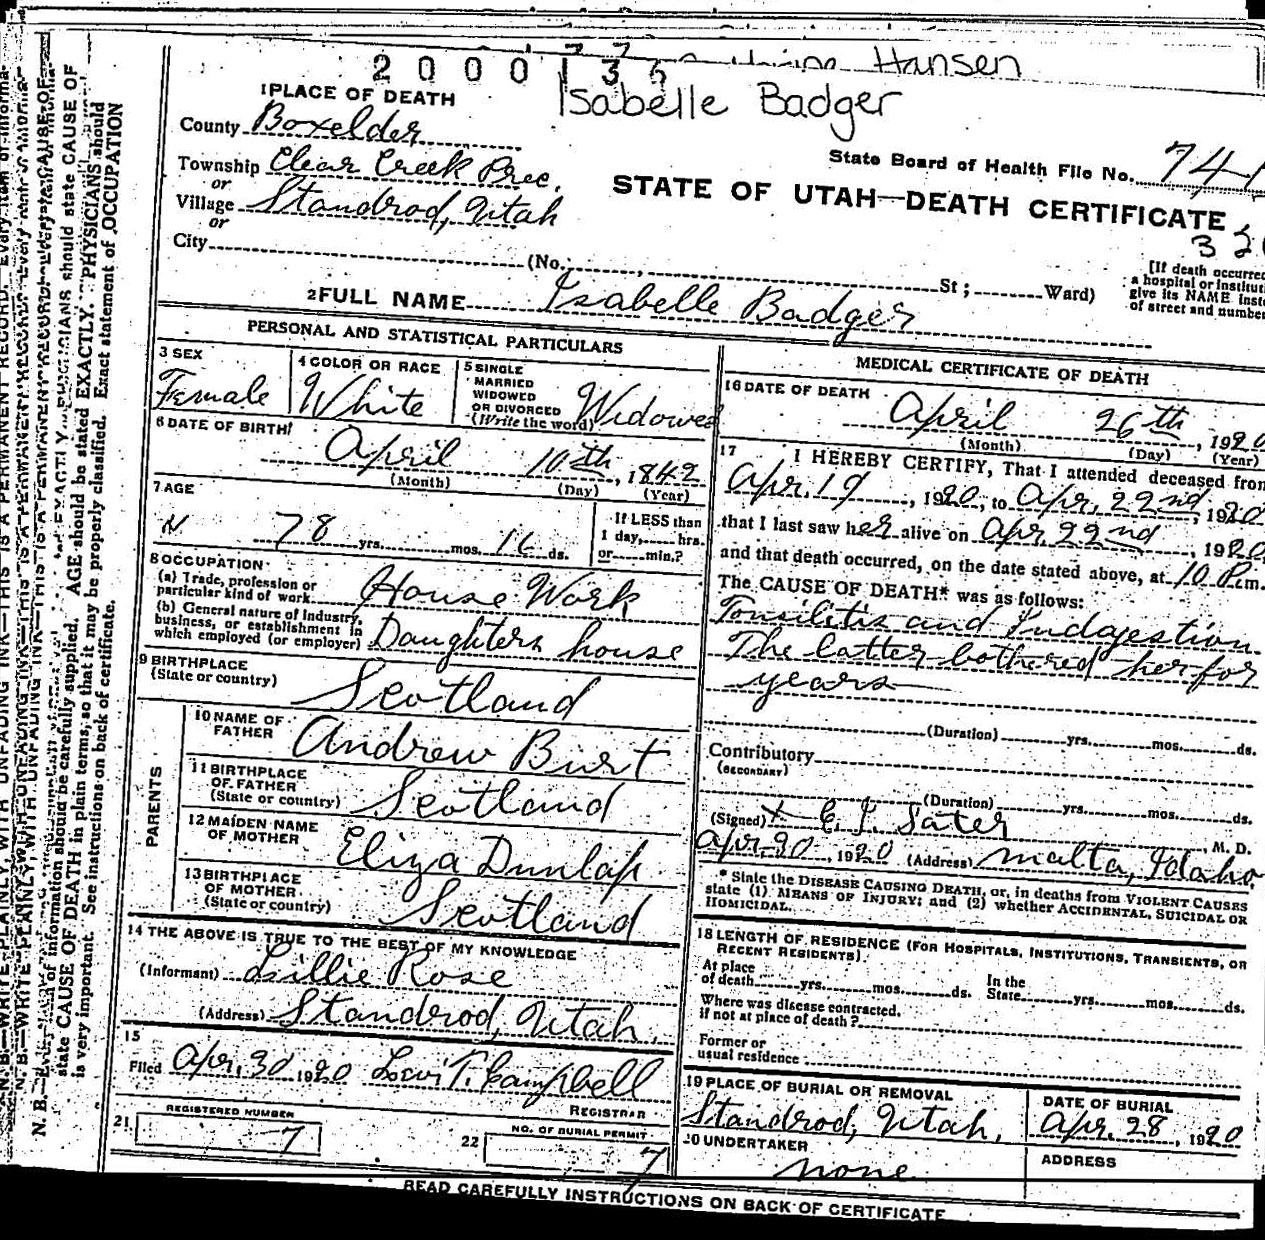 2000135
Hansen
Isabelle Badger
1 PLACE OF DEATH
County Boxelder
Township Clear Creek Prec.
or
Village Standrod, Utah
or
City
(No. St ; Ward)
State Board of Health File No. 741
STATE OF UTAH—DEATH CERTIFICATE
32
[If death occurred
a hospital or Instituti
give its NAME inste
of street and number
2 FULL NAME Isabelle Badger
PERSONAL AND STATISTICAL PARTICULARS
3 SEX
Female
4 COLOR OR RACE
White
5 SINGLE
MARRIED
WIDOWED
OR DIVORCED
(Write the word)
Widowed
6 DATE OF BIRTH
April 10th, 1842
(Month) (Day) (Year)
7 AGE
78 yrs. mos. 16 ds.
If LESS than
1 day, hrs.
or min.?
8 OCCUPATION
(a) Trade, profession or
particular kind of work House Work
(b) General nature of Industry,
business, or establishment in
which employed (or employer) Daughters house
9 BIRTHPLACE
(State or country) Scotland
PARENTS
10 NAME OF
FATHER Andrew Burt
11 BIRTHPLACE
OF FATHER
(State or country) Scotland
12 MAIDEN NAME
OF MOTHER Eliza Dunlap
13 BIRTHPLACE
OF MOTHER
(State or country) Scotland
14 THE ABOVE IS TRUE TO THE BEST OF MY KNOWLEDGE
(Informant) Lillie Rose
(Address) Standrod, Utah.
15
Filed Apr. 30 1920 Levi T. Campbell
REGISTRAR
21 REGISTERED NUMBER
7
22 NO. OF BURIAL PERMIT
7
MEDICAL CERTIFICATE OF DEATH
16 DATE OF DEATH
April 26th, 1920
(Month) (Day) (Year)
17 I HEREBY CERTIFY, That I attended deceased from
Apr. 19, 1920, to Apr. 22nd, 1920
that I last saw her alive on Apr. 22nd, 1920,
and that death occurred, on the date stated above, at 10 P.m.
The CAUSE OF DEATH* was as follows:
Tonsilitis and Indagestion
The latter bothered her for
years
(Duration) yrs. mos. ds.
Contributory
(SECONDARY)
(Duration) yrs. mos. ds.
(Signed) x E. J. Sater M. D.
Apr. 30, 1920 (Address) Malta, Idaho
* State the DISEASE CAUSING DEATH, or, in deaths from VIOLENT CAUSES
state (1) MEANS OF INJURY; and (2) whether ACCIDENTAL, SUICIDAL OR
HOMICIDAL.
18 LENGTH OF RESIDENCE (FOR HOSPITALS, INSTITUTIONS, TRANSIENTS, OR
RECENT RESIDENTS)
At place
of death yrs. mos. ds.
In the
State yrs. mos. ds.
Where was disease contracted,
if not at place of death?
Former or
usual residence
19 PLACE OF BURIAL OR REMOVAL
Standrod, Utah.
DATE OF BURIAL
Apr. 28, 1920
20 UNDERTAKER
none
ADDRESS
READ CAREFULLY INSTRUCTIONS ON BACK OF CERTIFICATE
N. B.—WRITE PLAINLY, WITH UNFADING INK—THIS IS A PERMANENT RECORD. Every item of informa-
of information should be carefully supplied. AGE should be stated EXACTLY. PHYSICIANS should
state CAUSE OF DEATH in plain terms, so that it may be properly classified. Exact statement of OCCUPATION
is very important. See instructions on back of certificate.